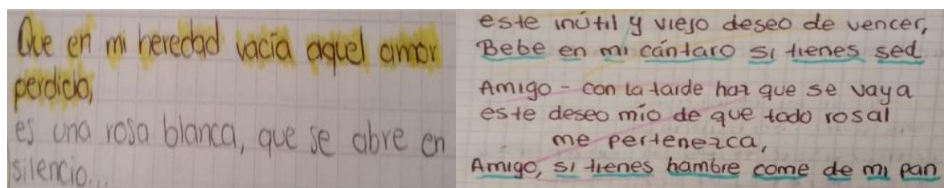 Que en mi heredad vacía aquel amor
perdido,
es una rosa blanca, que se abre en
silencio...
este inútil y viejo deseo de vencer,
Bebe en mi cántaro si tienes sed
Amigo - con la tarde haz que se vaya
este deseo mío de que todo rosal
me pertenezca,
Amigo, si tienes hambre come de mi pan